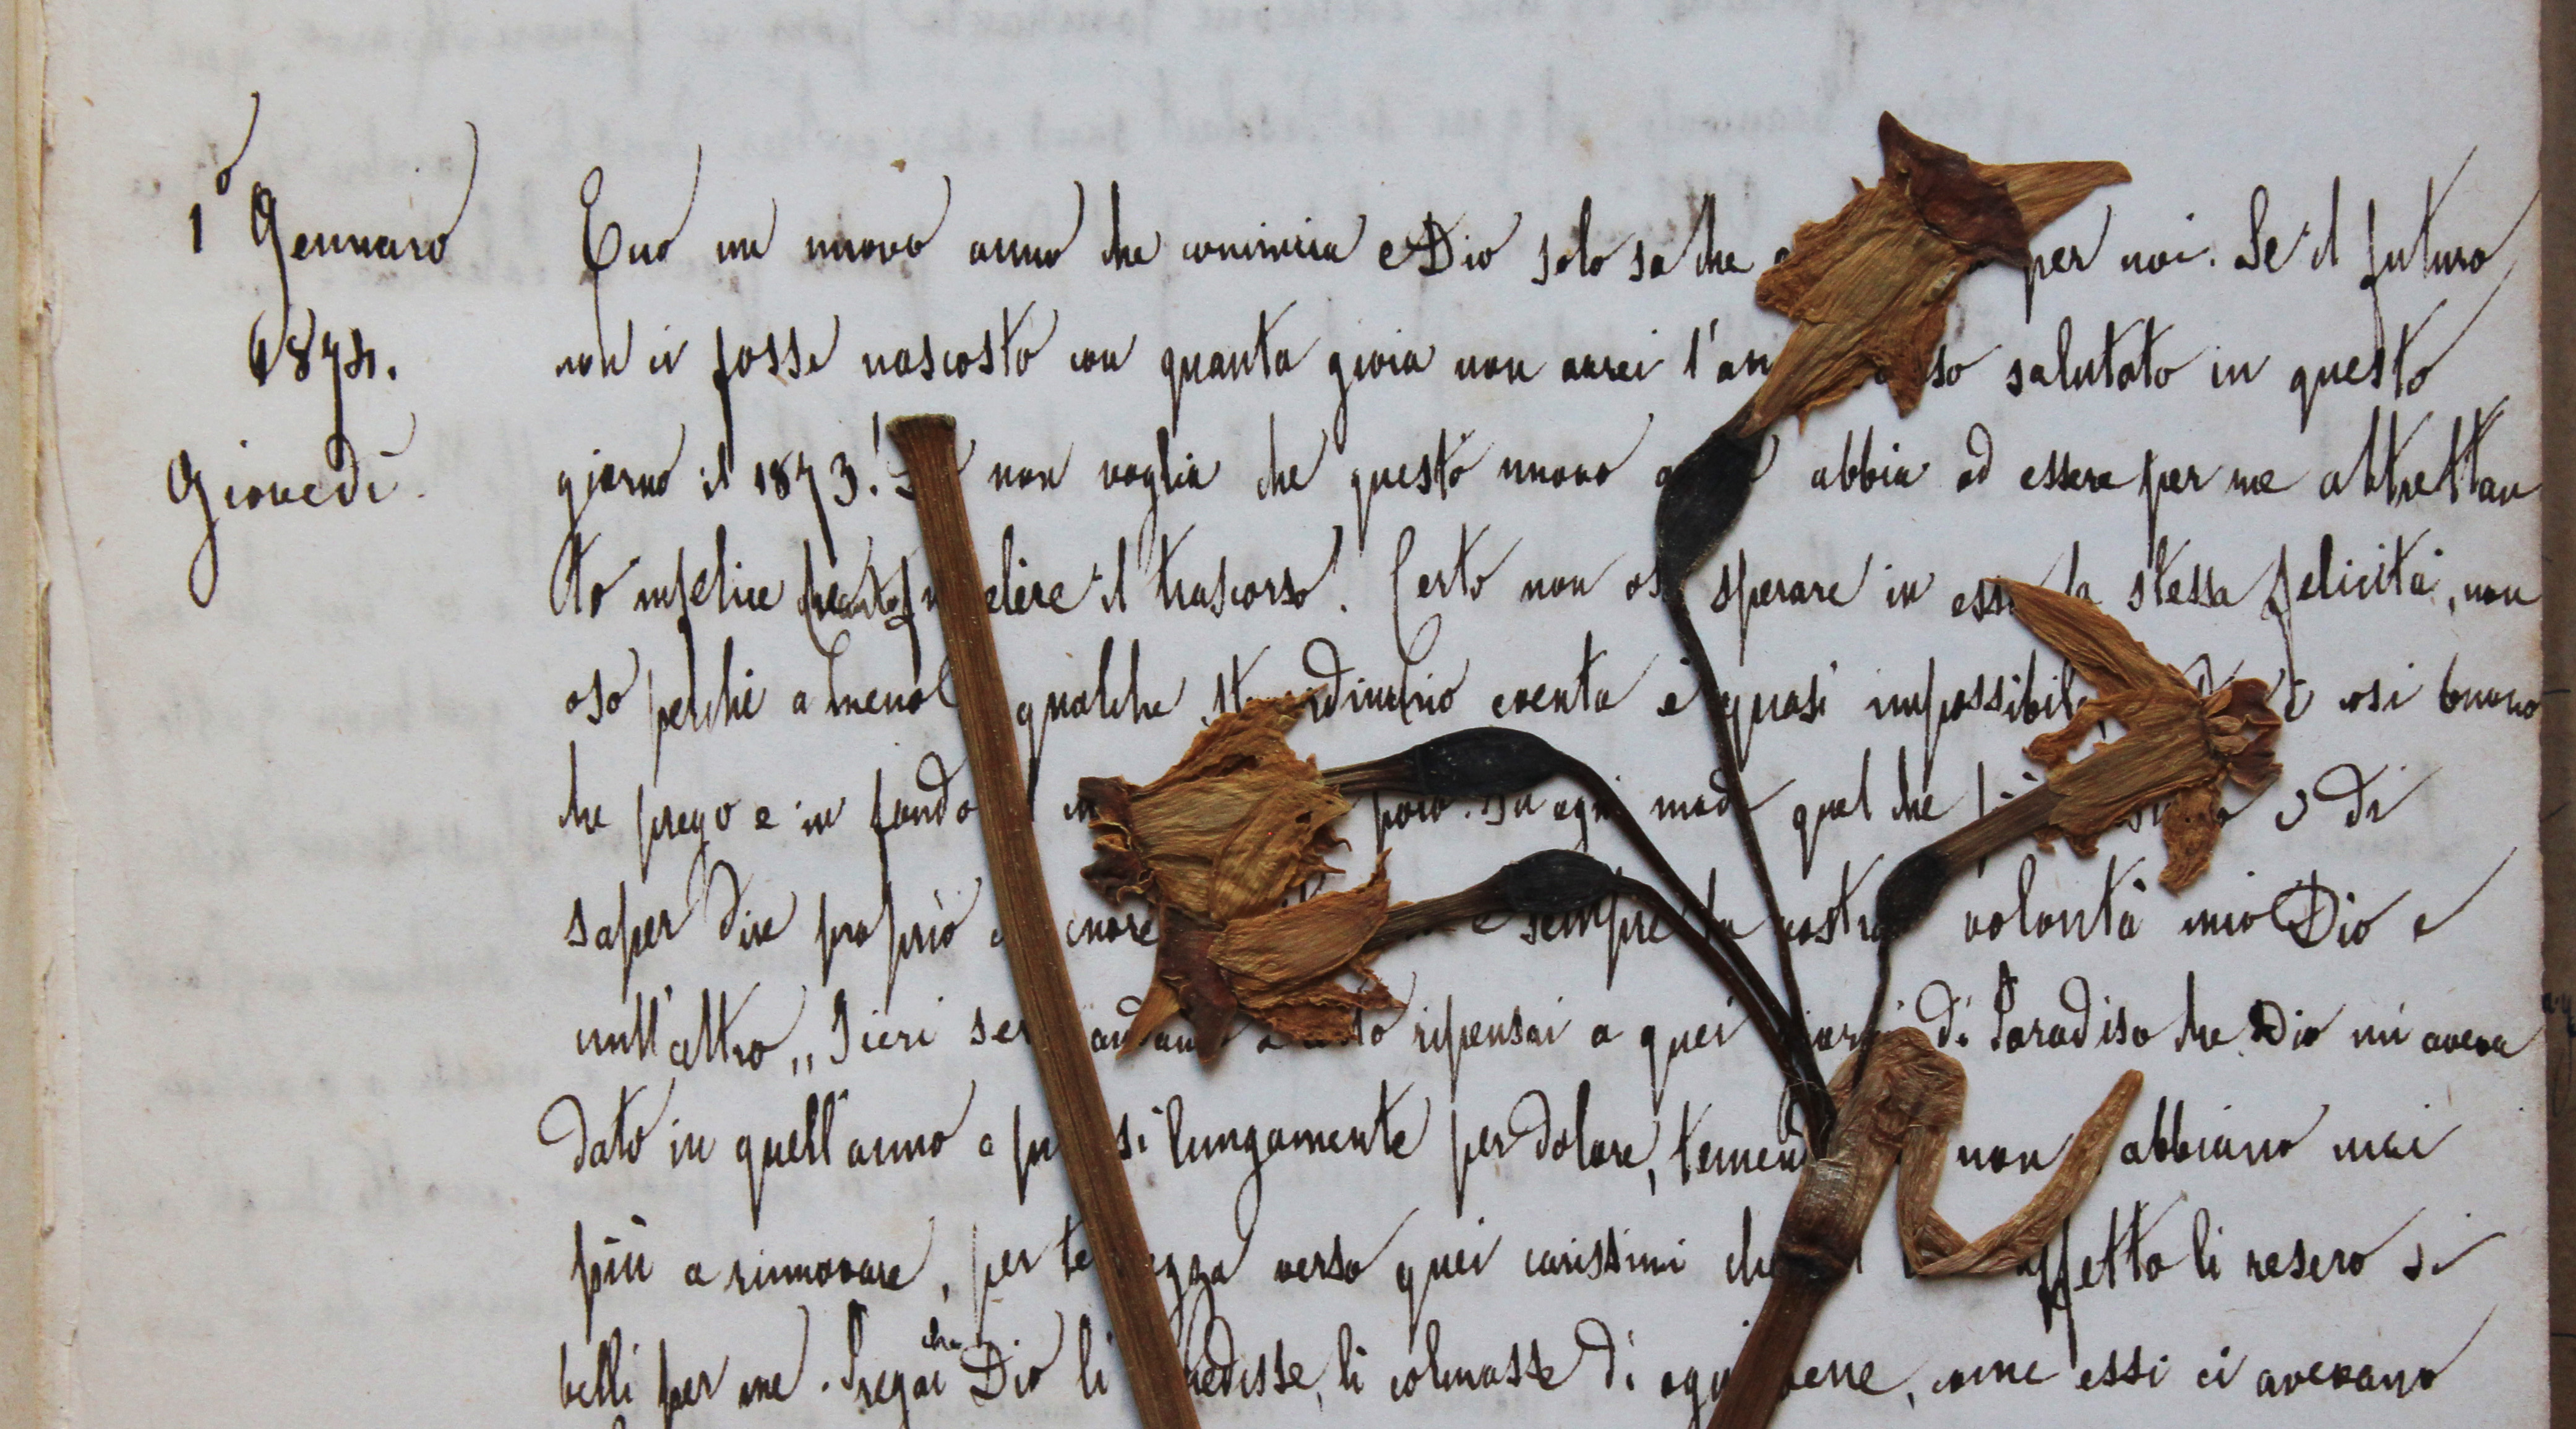 1º Gennaro
1874.
Giovedì.
Ecco un nuovo anno che comincia e Dio solo sa che per noi. Se il futuro
non ci fosse nascosto con quanta gioia non avrei l'an so salutato in questo
giorno il 1873! non voglia che questo nuovo abbia ad essere per me altrettan
to infelice il trascorso! Certo non oso sperare in esso la stessa felicità, non
oso perchè a meno qualche straordinario evento è quasi impossibile così buono
che prego e in fondo poco. In ogni modo quel che di
saper dire proprio cuore sempre la vostra volontà mio Dio e
null'altro„ Ieri ser andando a ripensai a quei giorni di Paradiso che Dio mi aveva
dato in quell'anno e pu si lungamente per dolore, temend non abbiano mai
più a rinnovare, per te ezza verso quei carissimi che ffetto li resero sì
belli per me. Pregai che Dio li edisse, li colmasse di ogni bene, come essi ci avevano